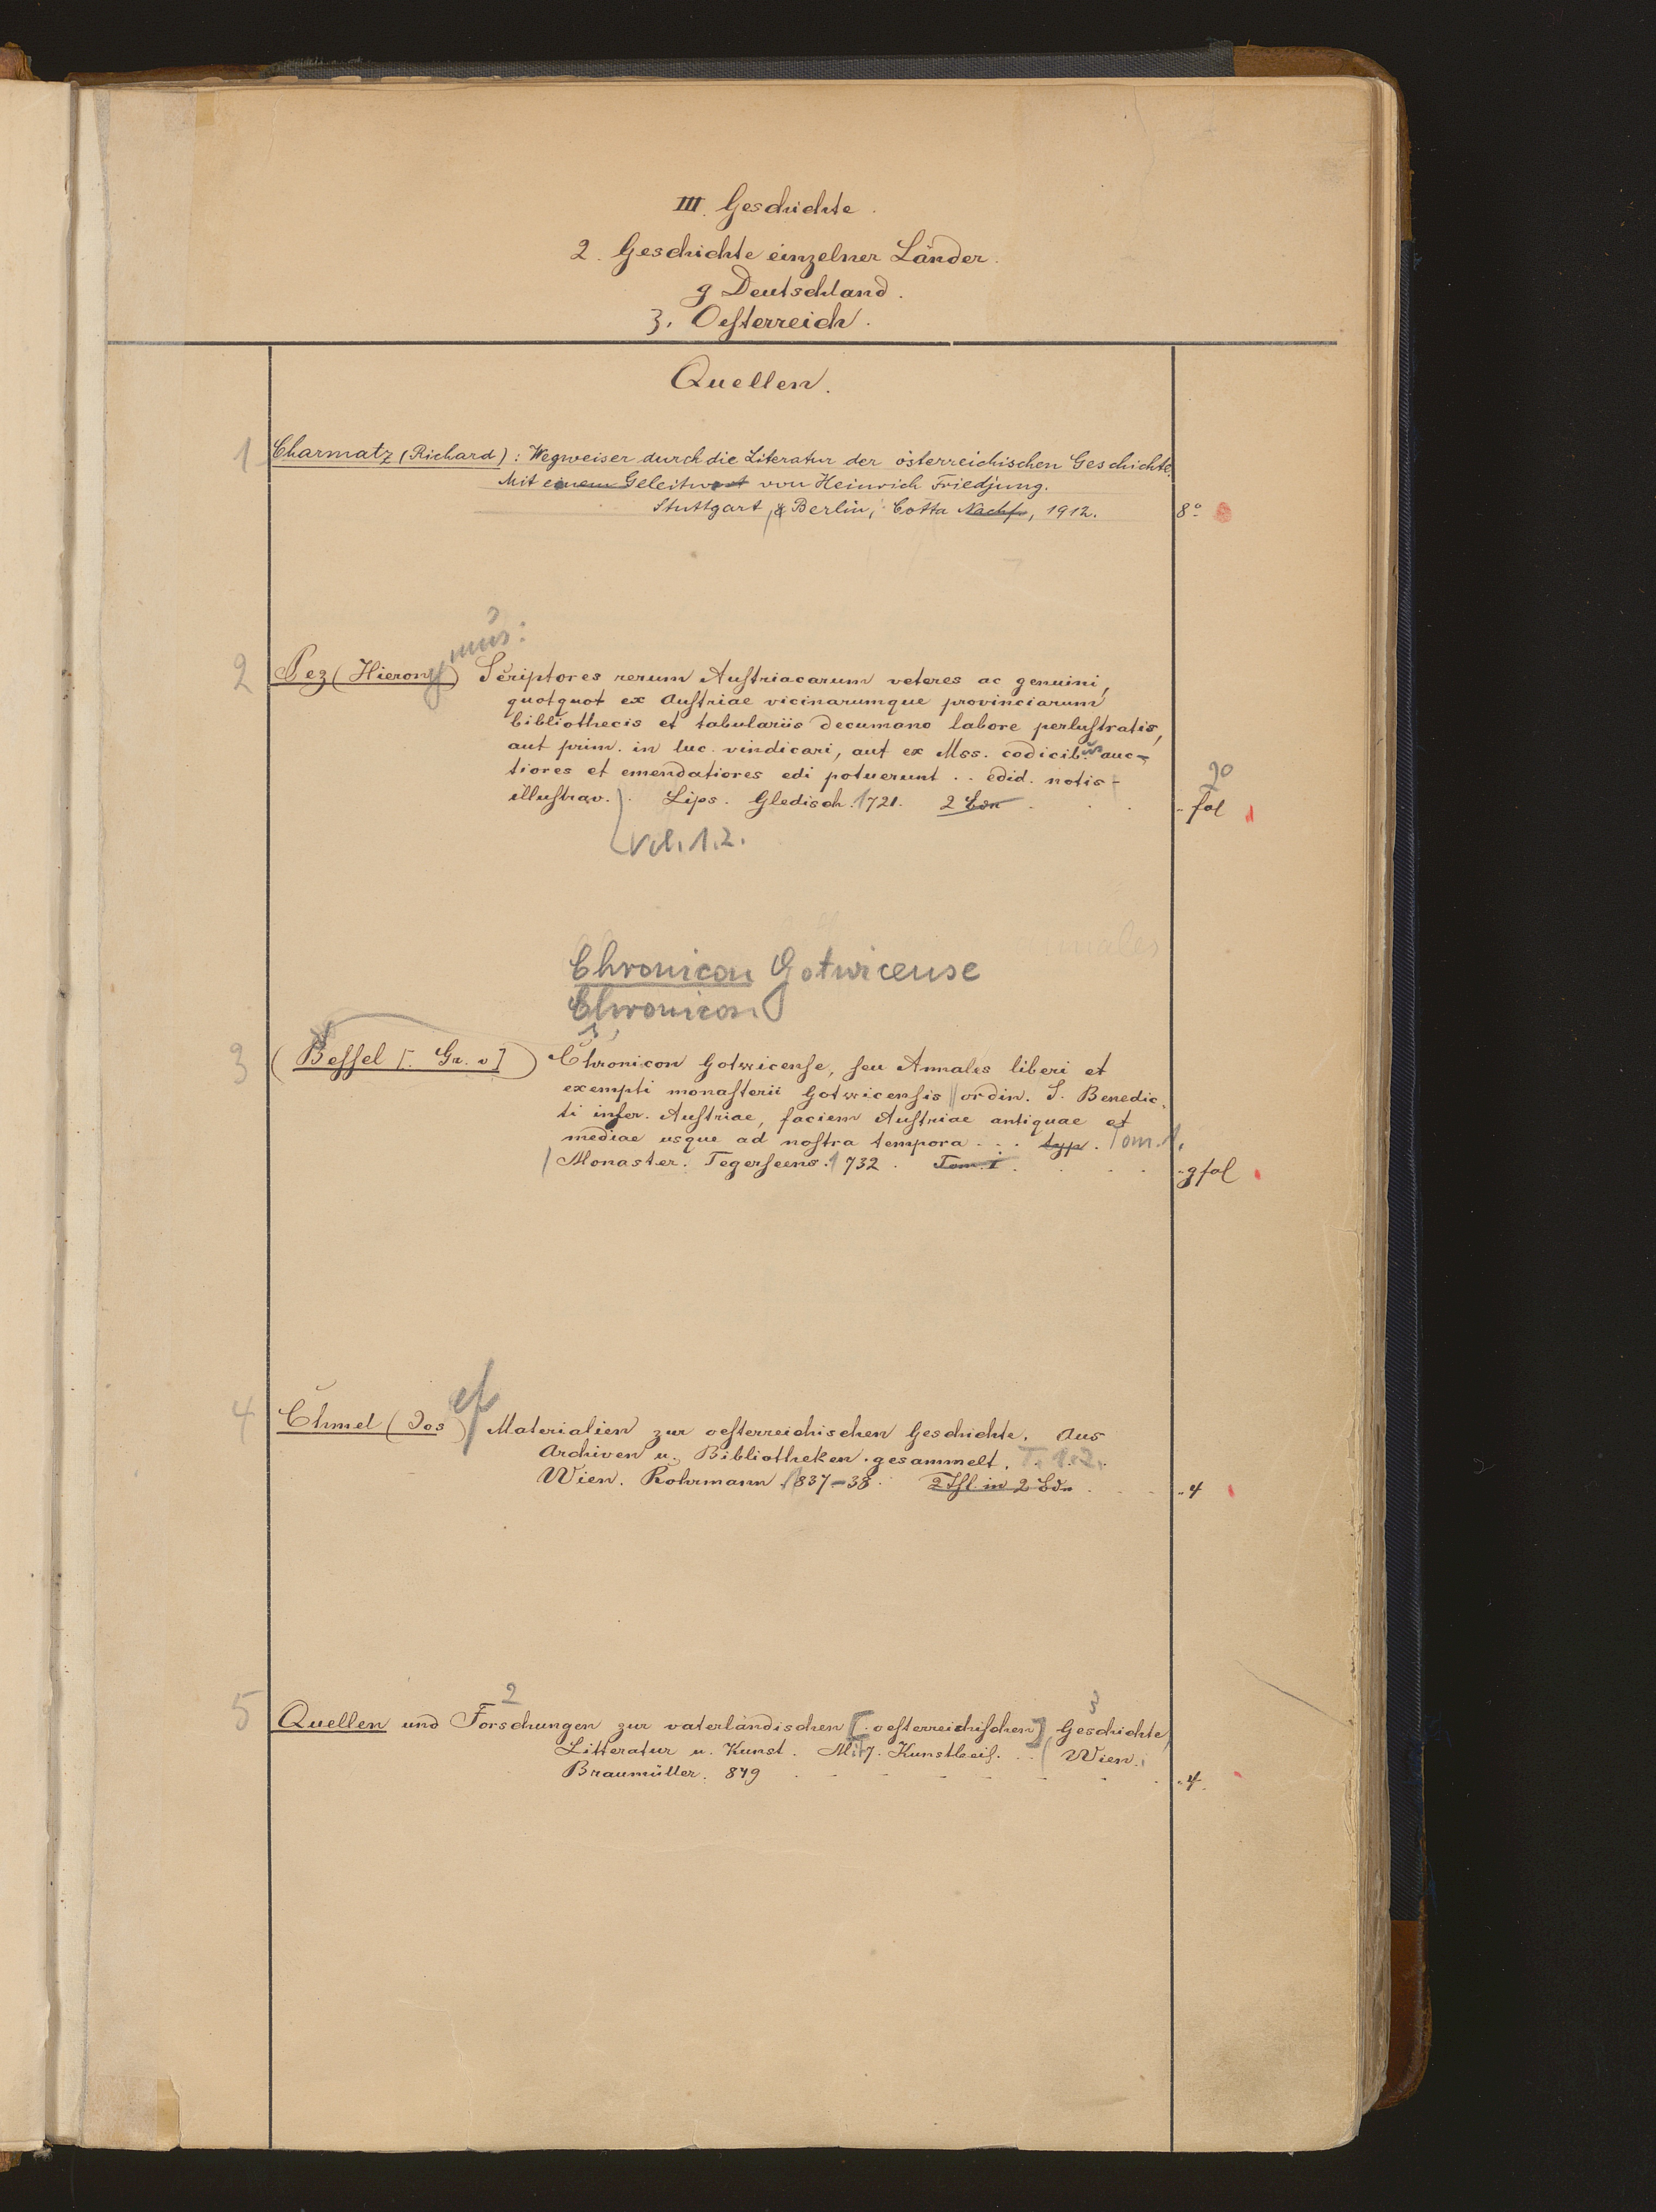 III. Geschichte.
2. Geschichte einzelner Länder.
g Deutschland.
3. Oesterreich.
Quellen.
1 Charmatz (Richard): Wegweiser durch die Literatur der österreichischen Geschichte.
Mit einem Geleitwort von Heinrich Friedjung.
Stuttgart, & Berlin, Cotta Nachf., 1912. 8°
2 Pez (Hieronymus: Scriptores rerum Austriacarum veteres ac genuini,
quotquot ex Austriae vicinarumque provinciarum
bibliothecis et tabulariis decumano labore perlustratis,
aut prim. in luc. vindicari, aut ex Mss. codicib. auc-
tiores et emendatiores edi potuerunt .. edid. notis 20
illustrav. Lips. Gledisch. 1721. 2 Bdn fol
Vol. 1.2.
Chronicon Gotwicense
Chronicon
3 (Bessel [. Gr. v]) Chronicon Gotwicense, seu Annales liberi et
exempti monasterii Gotwicensis ordin. S. Benedic-
ti infer. Austriae, faciem Austriae antiquae et
mediae usque ad nostra tempora ... typ. Tom. 1.
Monaster. Tegerseens. 1732. Tom. I gfol
4 Chmel (Jos ef Materialien zur oesterreichischen Geschichte. Aus
Archiven u. Bibliotheken gesammelt. T. 1.2.
Wien. Rohrmann 1837-38. 2 Thl. in 2 Bdn 4
2 3
5 Quellen und Forschungen zur vaterländischen [oesterreichischen] Geschichte,
Litteratur u. Kunst. Mit 7. Kunstbeil. .. Wien.
Braumüller. 849 4.